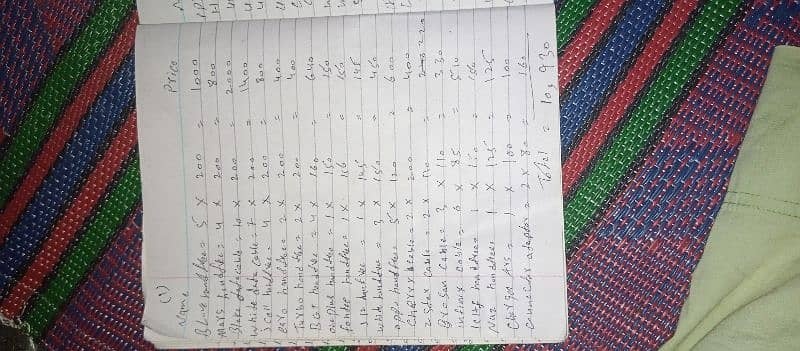 (1)
Name Price
handfree = 5 x 200 = 1000
Mall handfree = 4 x 200 = 800
datacable = 10 x 200 = 2000
White data cable = 7 x 200 = 1400
handfree = 4 x 200 = 800
Zero handfree = 2 x 200 = 400
Turbo handfree = 2 x 200 = 400
handfree = 4 x 160 = 640
handfree = 1 x 150 = 150
handfree = 1 x 150 = 150
= 1 x 145 = 145
white handfree = 3 x 150 = 450
apple handfree 5 x 120 = 600
cable = 2 x 200 = 400
2 star cable = 2 x 110 = 220
cable = 3 x 110 = 330
infinix cable = 6 x 85 = 510
handfree = 1 x 150 = 150
Naz handfree 1 x 125 = 125
Charger = 1 x 100 = 100
connector adapter = 2 x 80 = 160
Total = 10,930